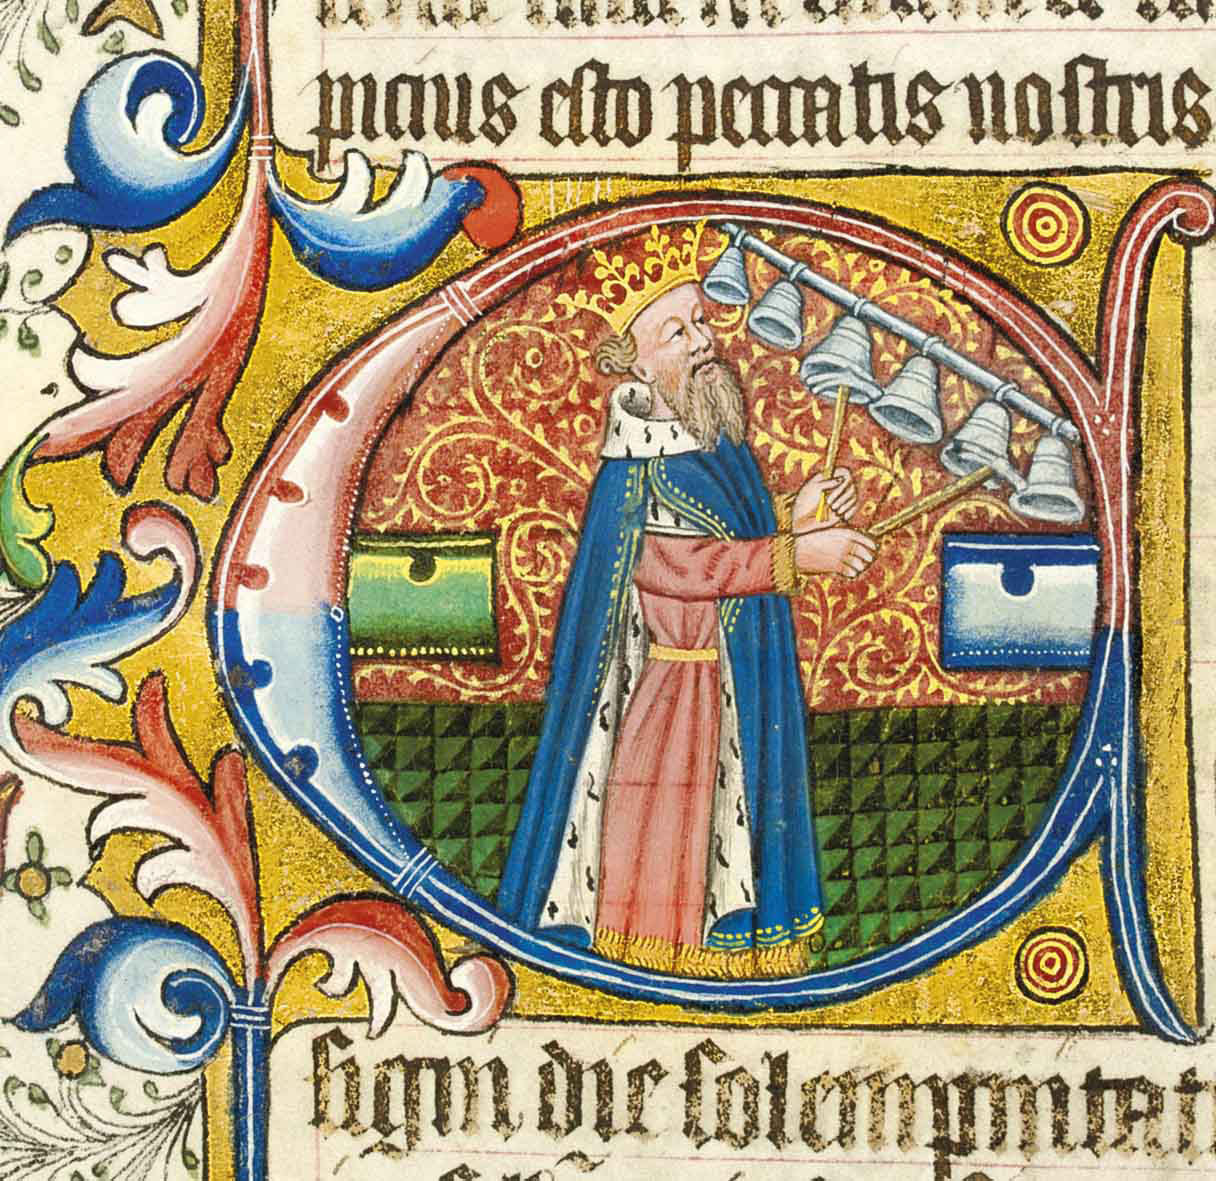 picius esto peccatis nostris
signi die solempnitat